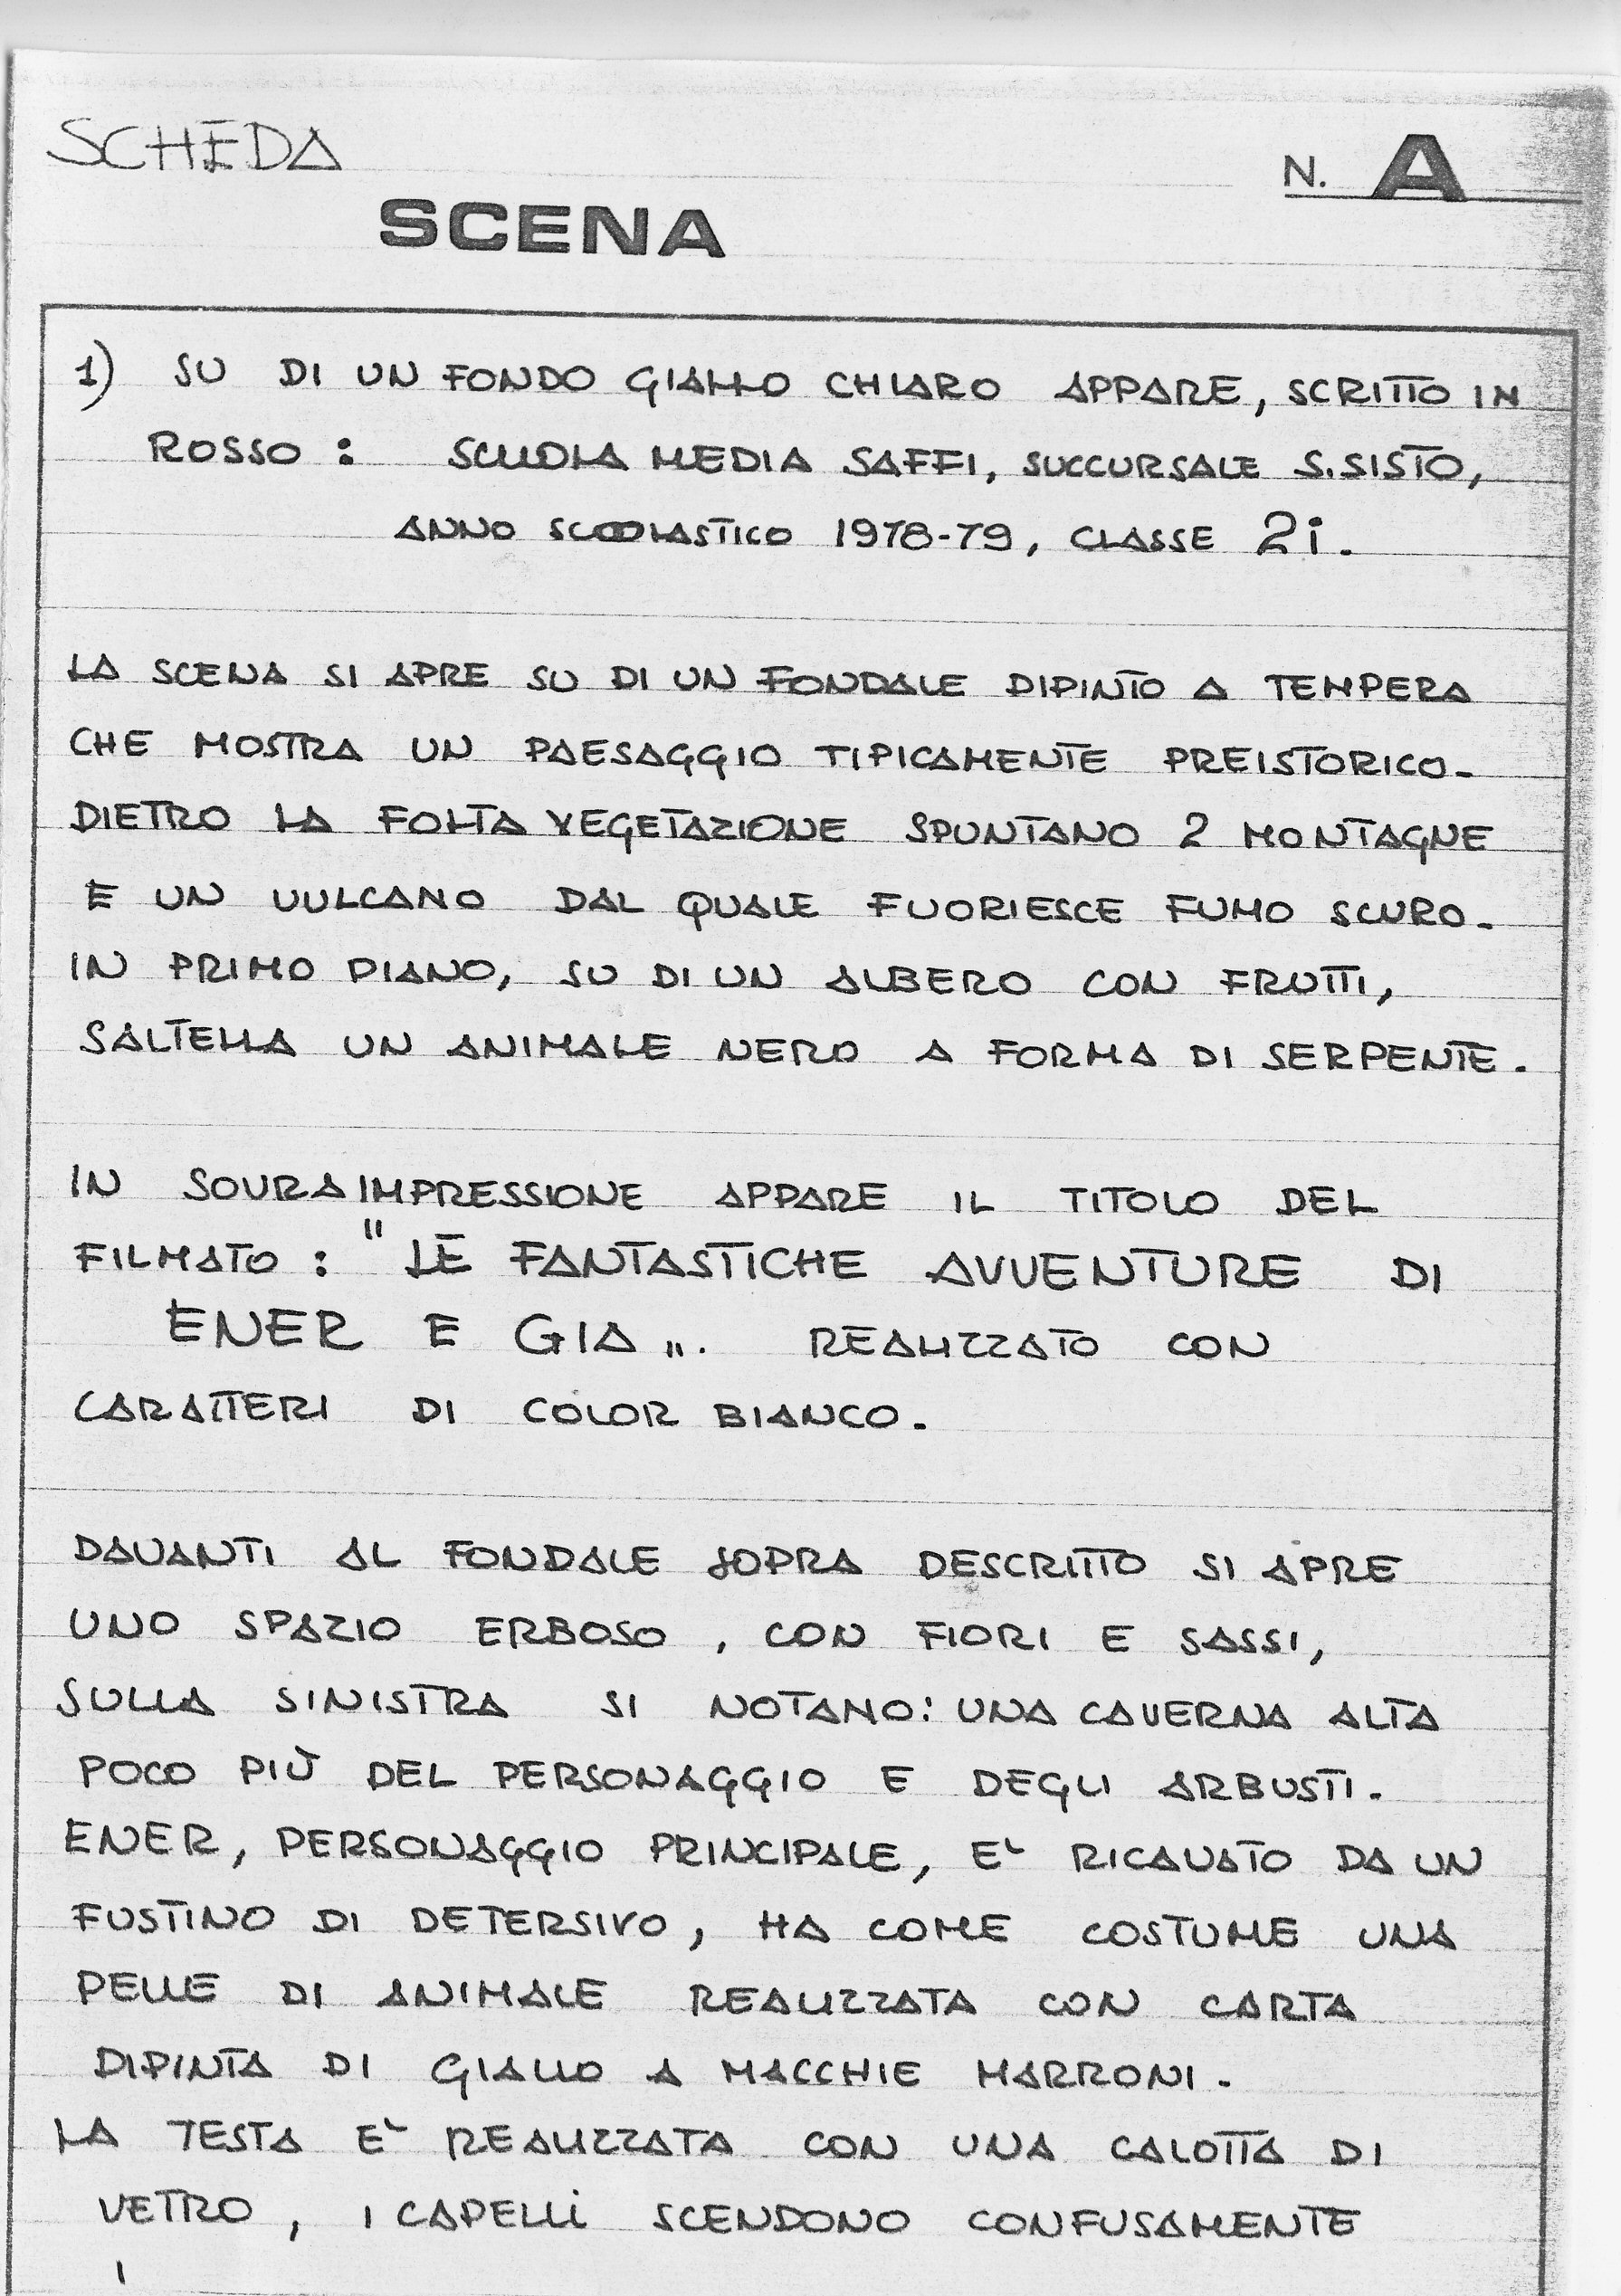 SCHEDA
N. A
SCENA
1) SU DI UN FONDO GIALLO CHIARO APPARE, SCRITTO IN
ROSSO : SCUOLA MEDIA SAFFI, SUCCURSALE S. SISTO,
ANNO SCOLASTICO 1978-79, CLASSE 2i.
LA SCENA SI APRE SU DI UN FONDALE DIPINTO A TEMPERA
CHE MOSTRA UN PAESAGGIO TIPICAMENTE PREISTORICO.
DIETRO LA FOLTA VEGETAZIONE SPUNTANO 2 MONTAGNE
E UN VULCANO DAL QUALE FUORIESCE FUMO SCURO.
IN PRIMO PIANO, SU DI UN ALBERO CON FRUTTI,
SALTELLA UN ANIMALE NERO A FORMA DI SERPENTE.
IN SOVRAIMPRESSIONE APPARE IL TITOLO DEL
FILMATO : " LE FANTASTICHE AVVENTURE DI
ENER E GIA ". REALIZZATO CON
CARATTERI DI COLOR BIANCO.
DAVANTI AL FONDALE SOPRA DESCRITTO SI APRE
UNO SPAZIO ERBOSO, CON FIORI E SASSI,
SULLA SINISTRA SI NOTANO: UNA CAVERNA ALTA
POCO PIÙ DEL PERSONAGGIO E DEGLI ARBUSTI.
ENER, PERSONAGGIO PRINCIPALE, E' RICAVATO DA UN
FUSTINO DI DETERSIVO, HA COME COSTUME UNA
PELLE DI ANIMALE REALIZZATA CON CARTA
DIPINTA DI GIALLO A MACCHIE MARRONI.
LA TESTA E' REALIZZATA CON UNA CALOTTA DI
VETRO, I CAPELLI SCENDONO CONFUSAMENTE